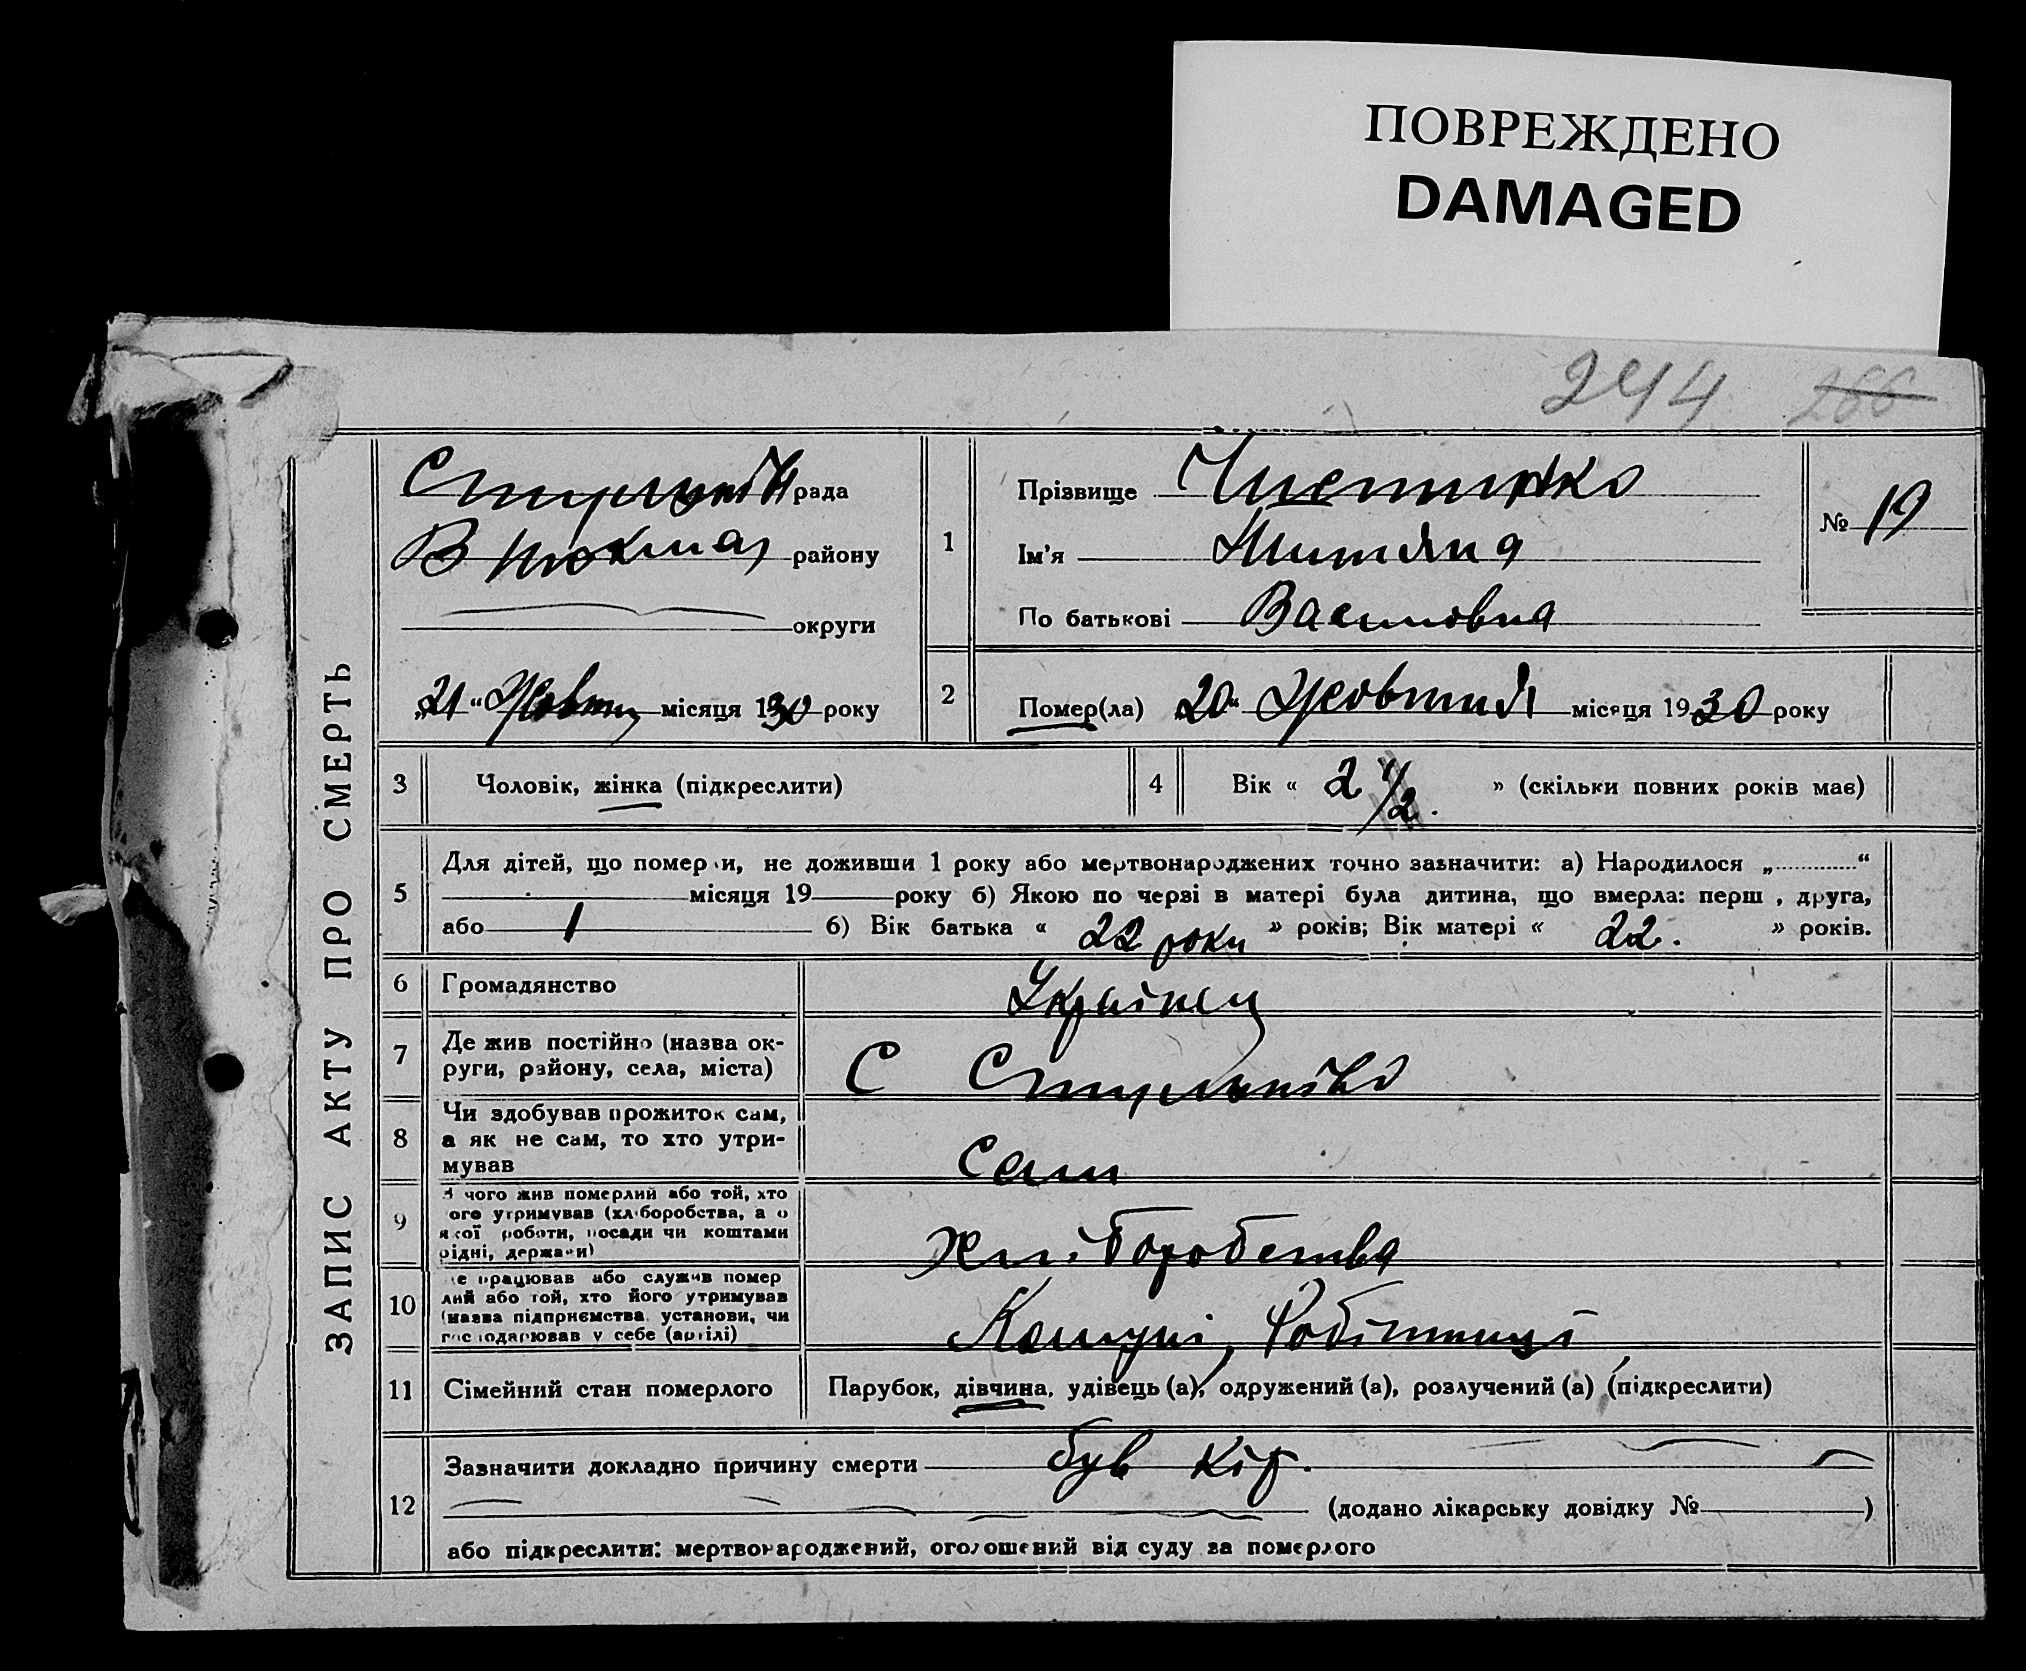 ПОВРЕЖДЕНО
DAMAGED
244 266
ЗАПИС АКТУ ПРО СМЕРТЬ
рада
району
округи
„21“ Жовтня місяця 1930 року
1
Прізвище
Ім'я
По батькові Василовна
№ 19
2
Помер(ла) „20“ Жовтня місяця 1930 року
3
Чоловік, жінка (підкреслити)
4
Вік « 2 1/2 » (скільки повних років має)
5
Для дітей, що померли, не доживши 1 року або мертвонароджених точно зазначити: а) Народилося „ “
місяця 19 року б) Якою по черзі в матері була дитина, що вмерла: перш , друга,
або 1 б) Вік батька « 22 роки » років; Вік матері « 22. » років.
6
Громадянство Українец
7
Де жив постійно (назва ок-
руги, району, села, міста)
С
8
Чи здобував прожиток сам,
а як не сам, то хто утри-
мував
9
З чого жив померлий або той, хто
ого утримував (хліборобства, а о
якої роботи, посади чи коштами
рідні, держави)
Хліборобства
10
е працював або служив помер
лий або той, хто його утримував
(назва підприємства, установи, чи
господарював у себе (артілі)
11
Сімейний стан померлого
Парубок, дівчина, удівець (а), одружений (а), розлучений (а) (підкреслити)
12
Зазначити докладно причину смерти був кір.
(додано лікарську довідку № )
або підкреслити: мертвонароджений, оголошений від суду за померлого